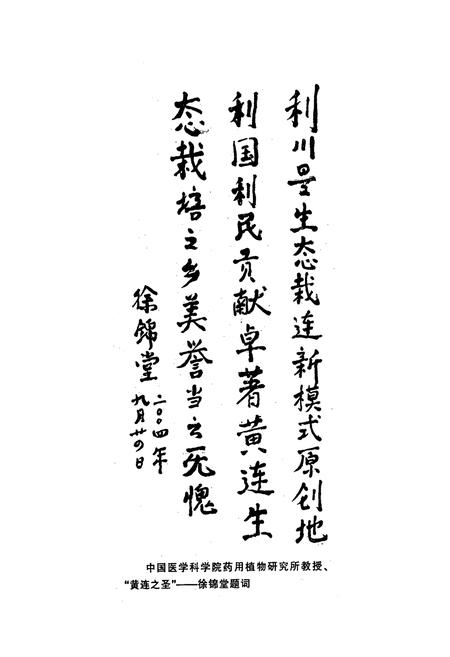 利川是生态栽连新模式原创地
利国利民贡献卓著黄连生
态栽培之乡美誉当之无愧
徐锦堂
二〇〇四年
九月廿四日
中国医学科学院药用植物研究所教授、
“黄连之圣”——徐锦堂题词